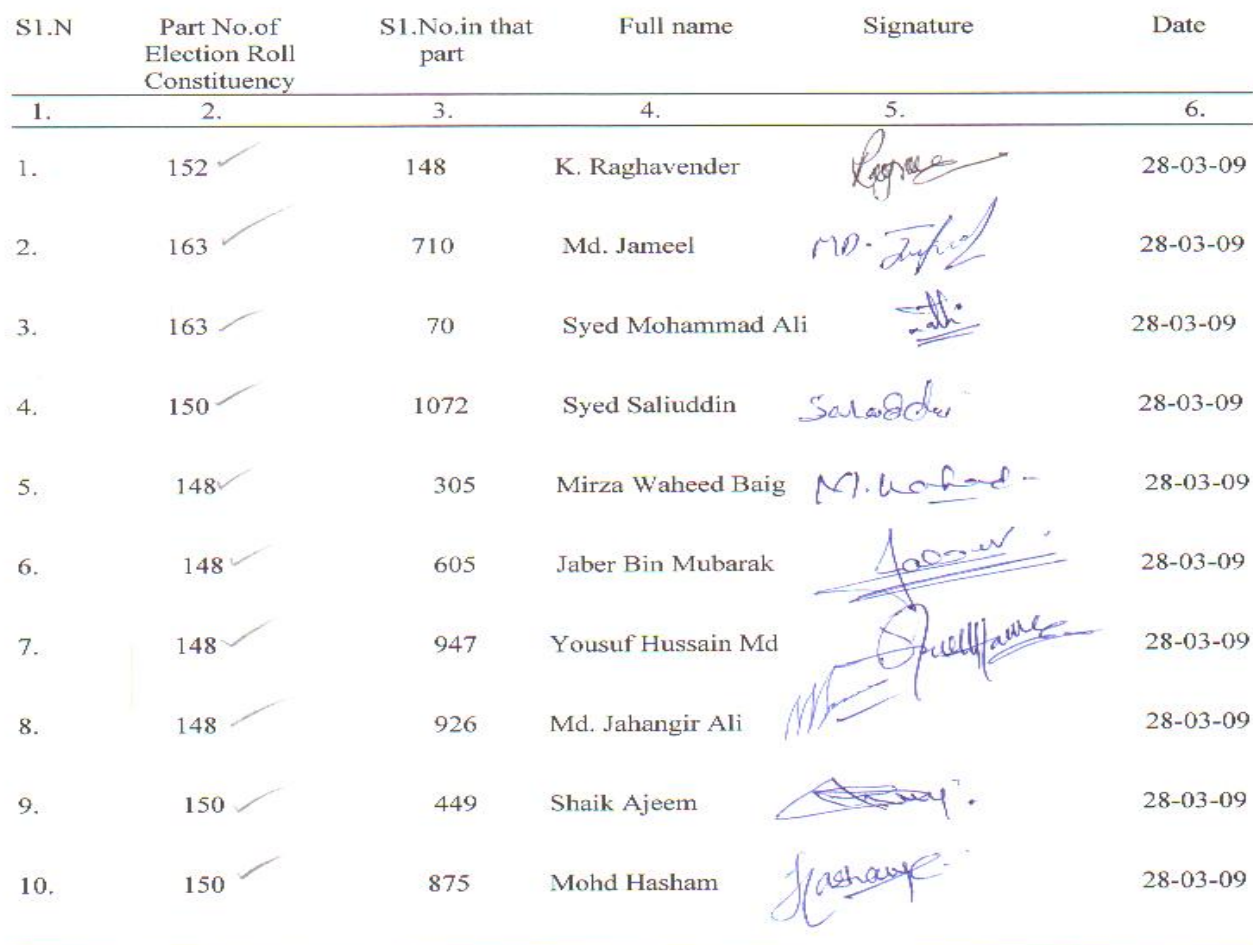 S1.N Part No.of S1.No.in that Full name Signature Date
Election Roll part
Constituency
1. 2. 3. 4. 5. 6.
1. 152 148 K. Raghavender 28-03-09
2. 163 710 Md. Jameel MD. 28-03-09
3. 163 70 Syed Mohammad Ali 28-03-09
4. 150 1072 Syed Saliuddin 28-03-09
5. 148 305 Mirza Waheed Baig 28-03-09
6. 148 605 Jaber Bin Mubarak 28-03-09
7. 148 947 Yousuf Hussain Md 28-03-09
8. 148 926 Md. Jahangir Ali 28-03-09
9. 150 449 Shaik Ajeem 28-03-09
10. 150 875 Mohd Hasham 28-03-09